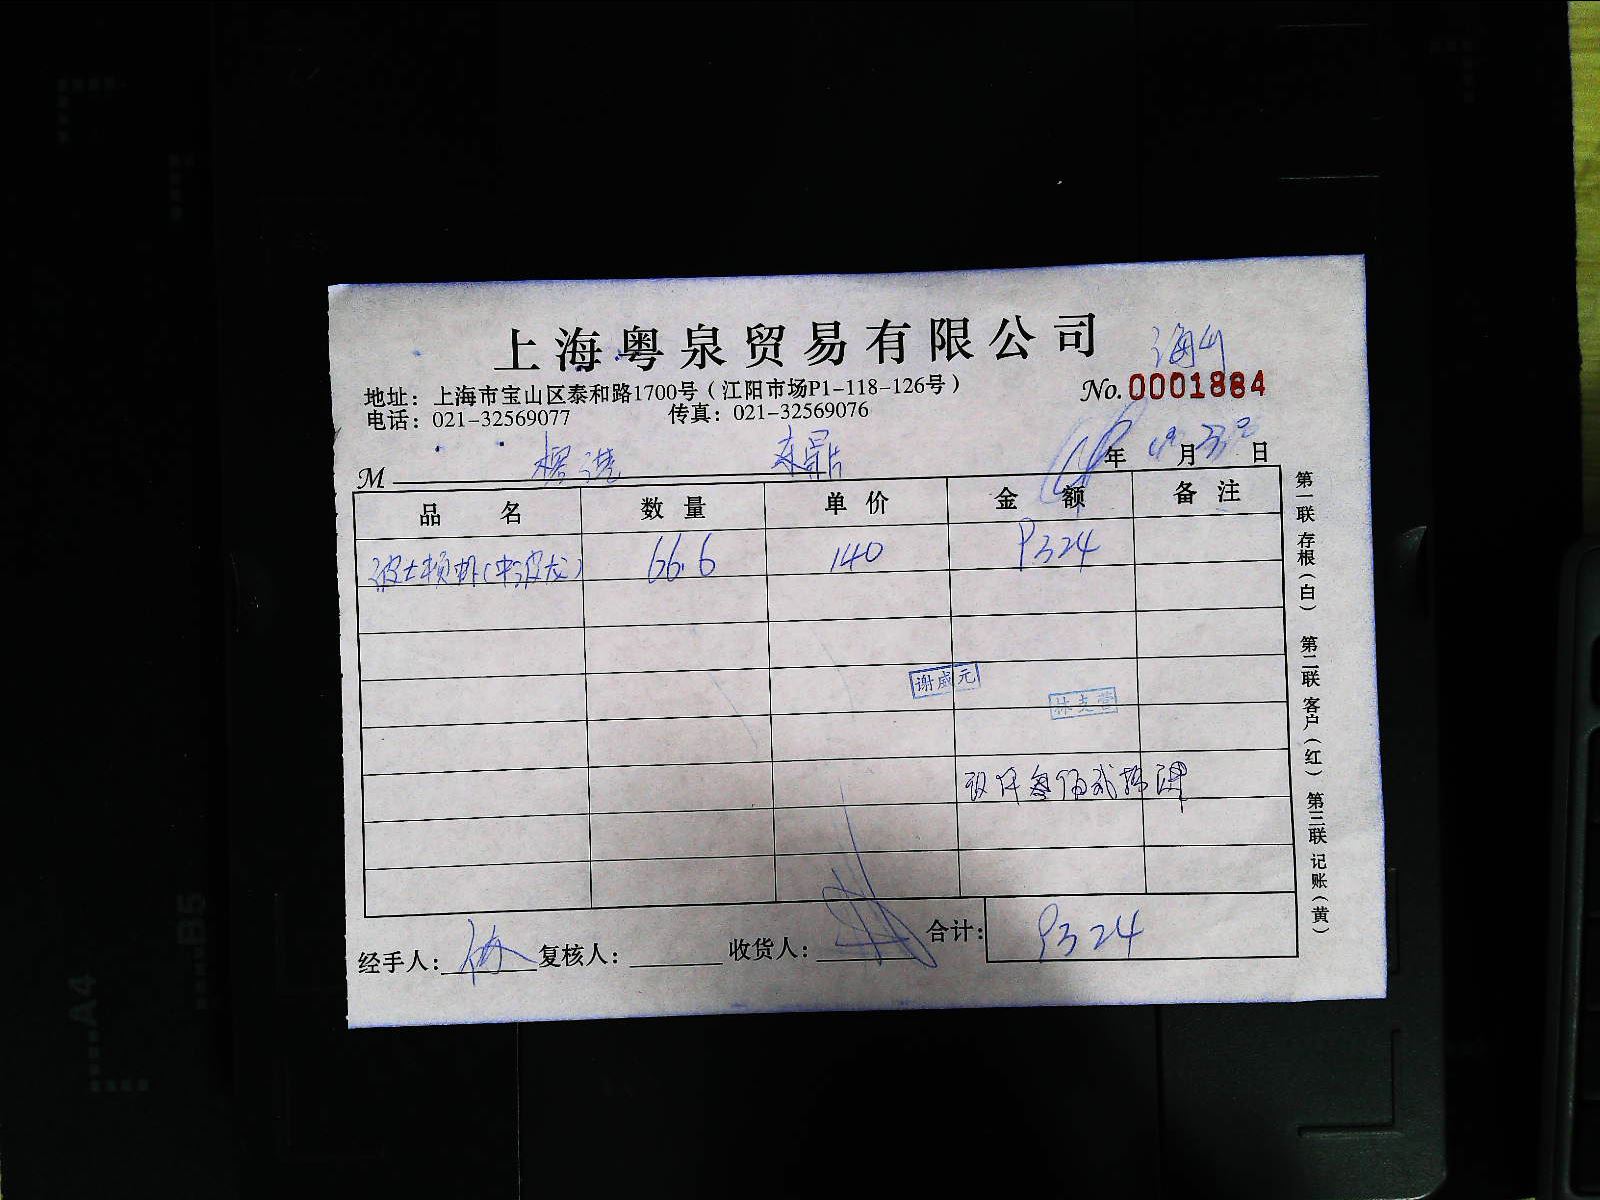 上海粤泉贸易有限公司
地址：上海市宝山区泰和路1700号（江阳市场P1-118-126号）
No. 0001884
电话：021-32569077 传真：021-32569076
M 年 月 日
品 名 数 量 单 价 金 额 备 注
波士顿 66.6 140 9324
谢威元
林支营
玖仟叁佰贰拾肆
经手人： 复核人： 收货人： 合计： 9324
第一联 存根（白） 第二联 客户（红） 第三联 记账（黄）
A4
B5